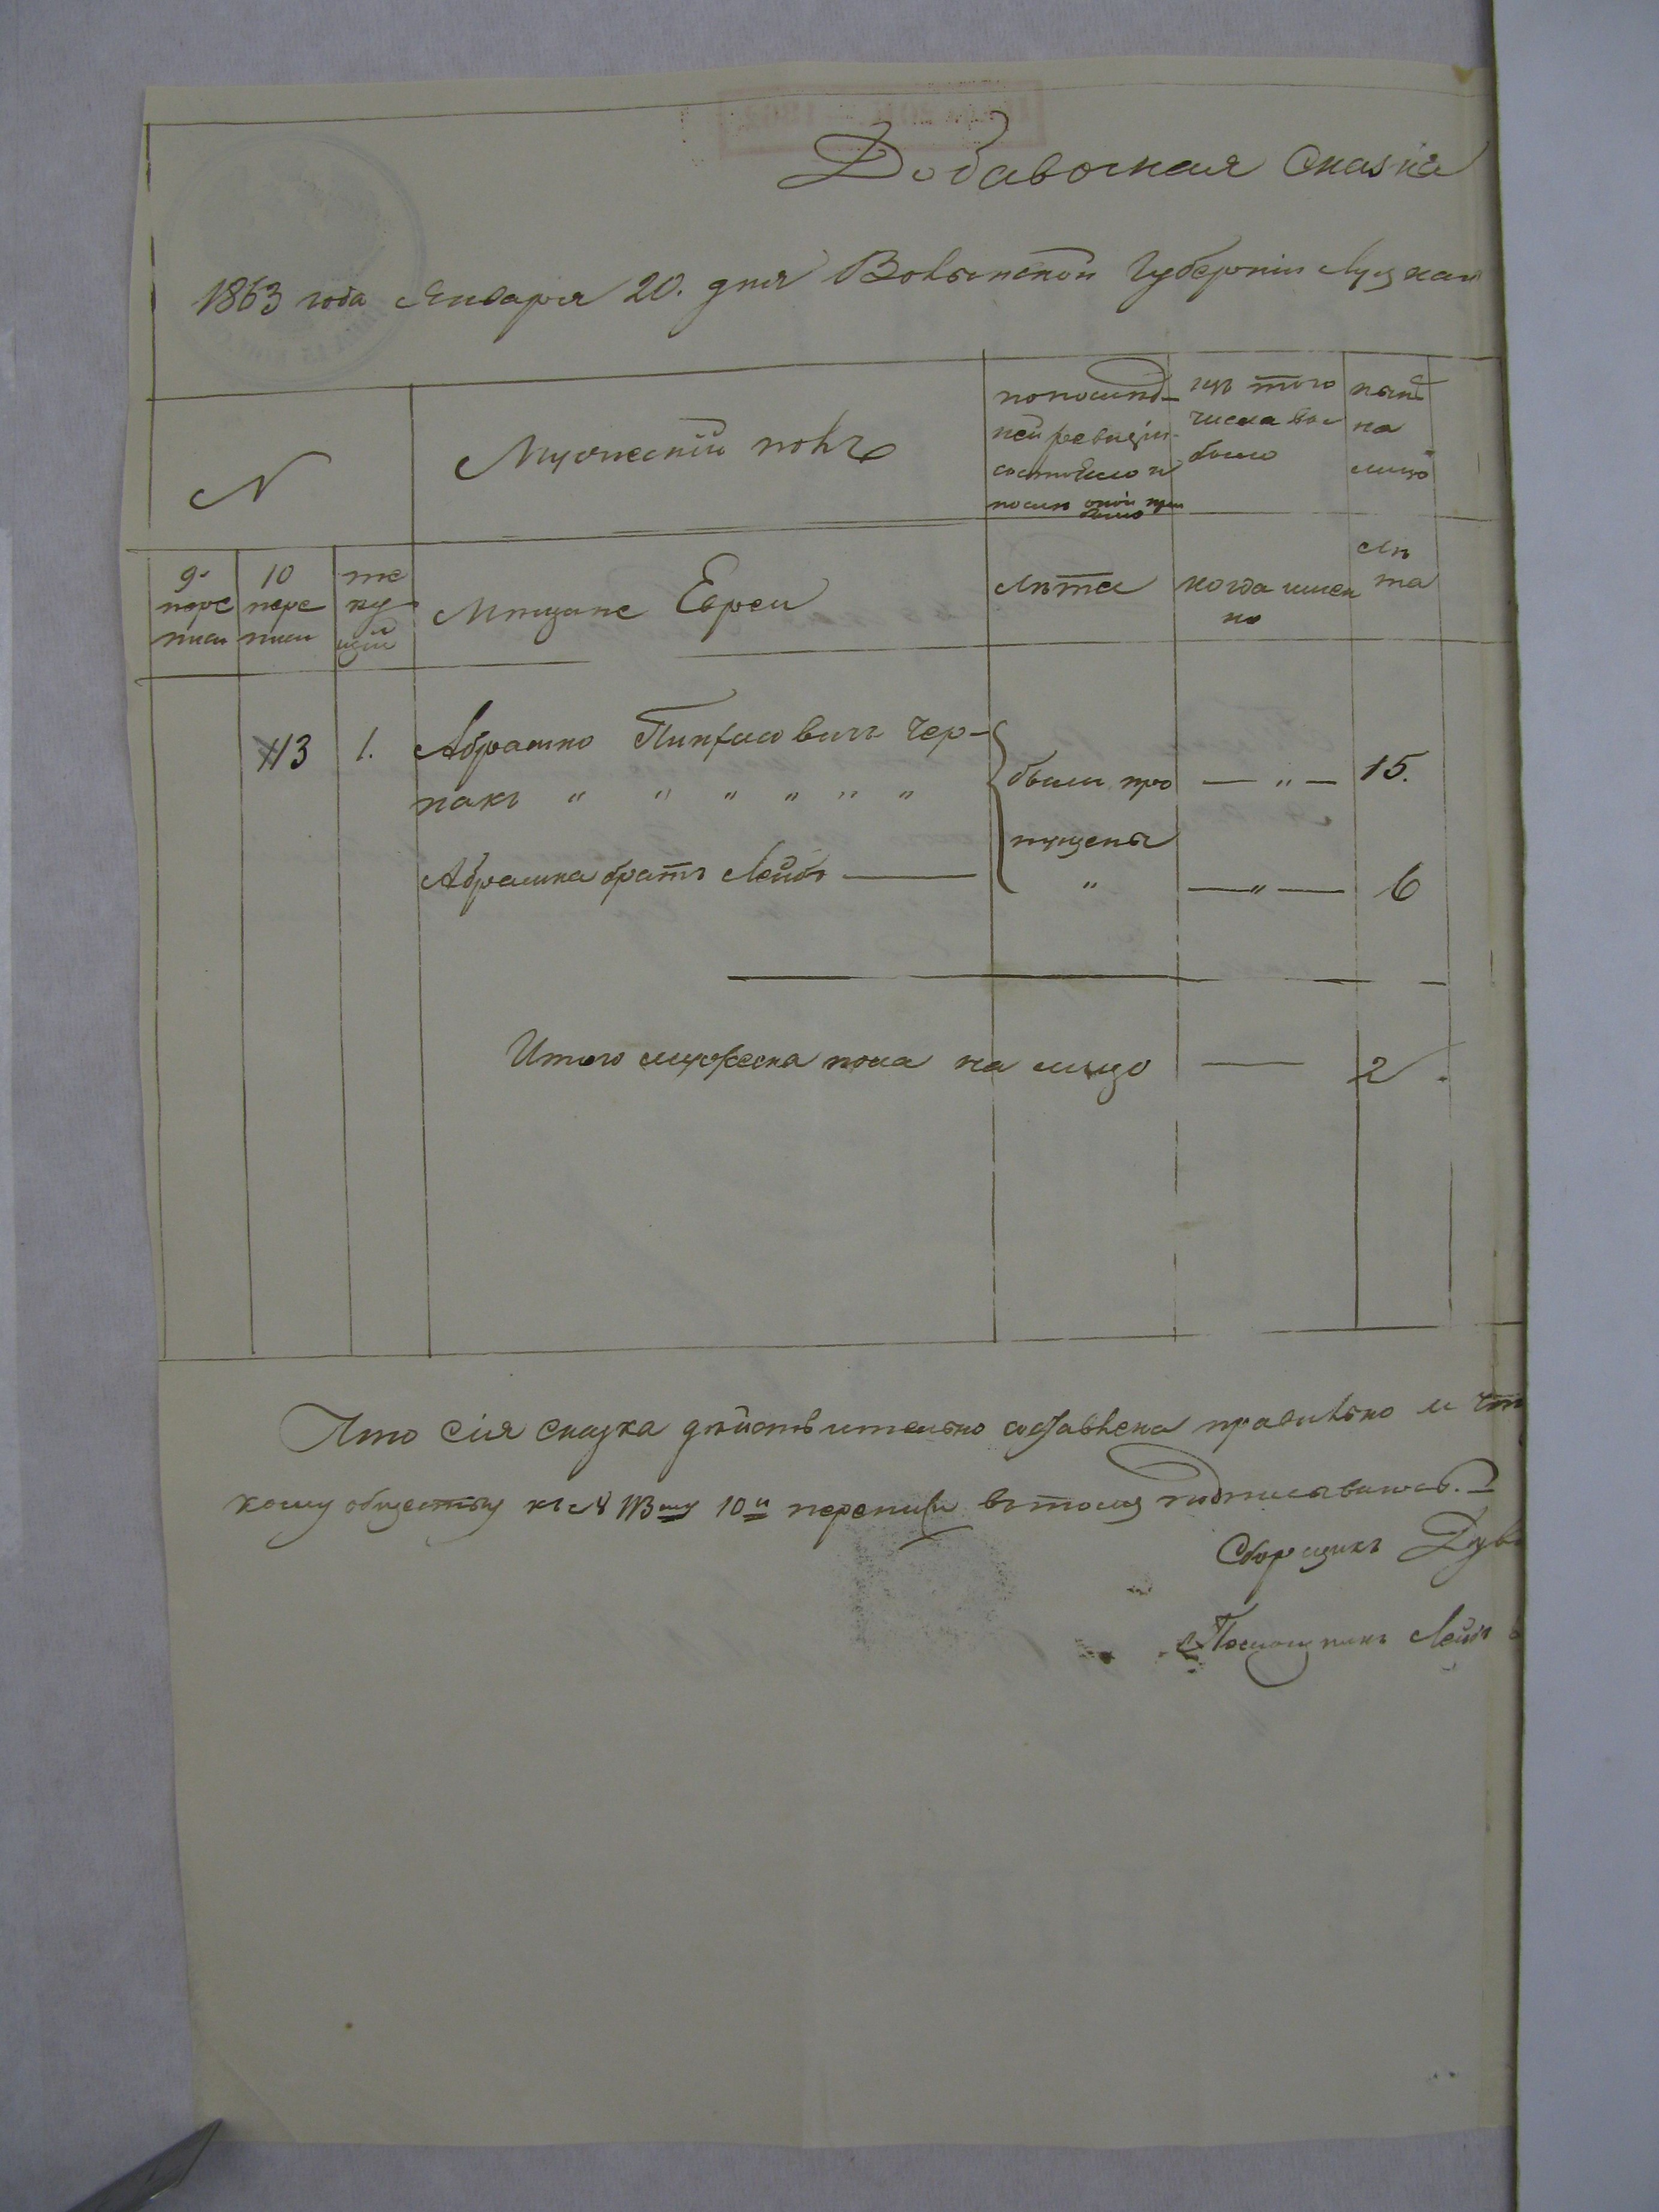 Добавочная Сказка
1863 года Января 20. дня Волынской Губерніи Луцкаго
N
Мужескій полъ
по послѣд-
ней ревизіи
состояло и
послѣ оной при
было
изъ того
числа вы
было
нынѣ
на
лицо
9.
пере
писи
10
пере
писи
те
ку
щій
Мѣщане Евреи
Лѣта
когда имен
но
Лѣ
та
113 1. Абрамко Пинхасовичъ Чер-
накъ " " " " " "
были про — " — 15.
пущены
Абрамка братъ Лейбъ — " — " — 6
Итого мужеска пола на лицо — 2.
Что сія сказка дѣйствительно составлена правильно и что
кому обществу къ N 113му 10й переписи въ томъ подписываюсь. —
Сборщикъ Дув
Помощникъ Лейб